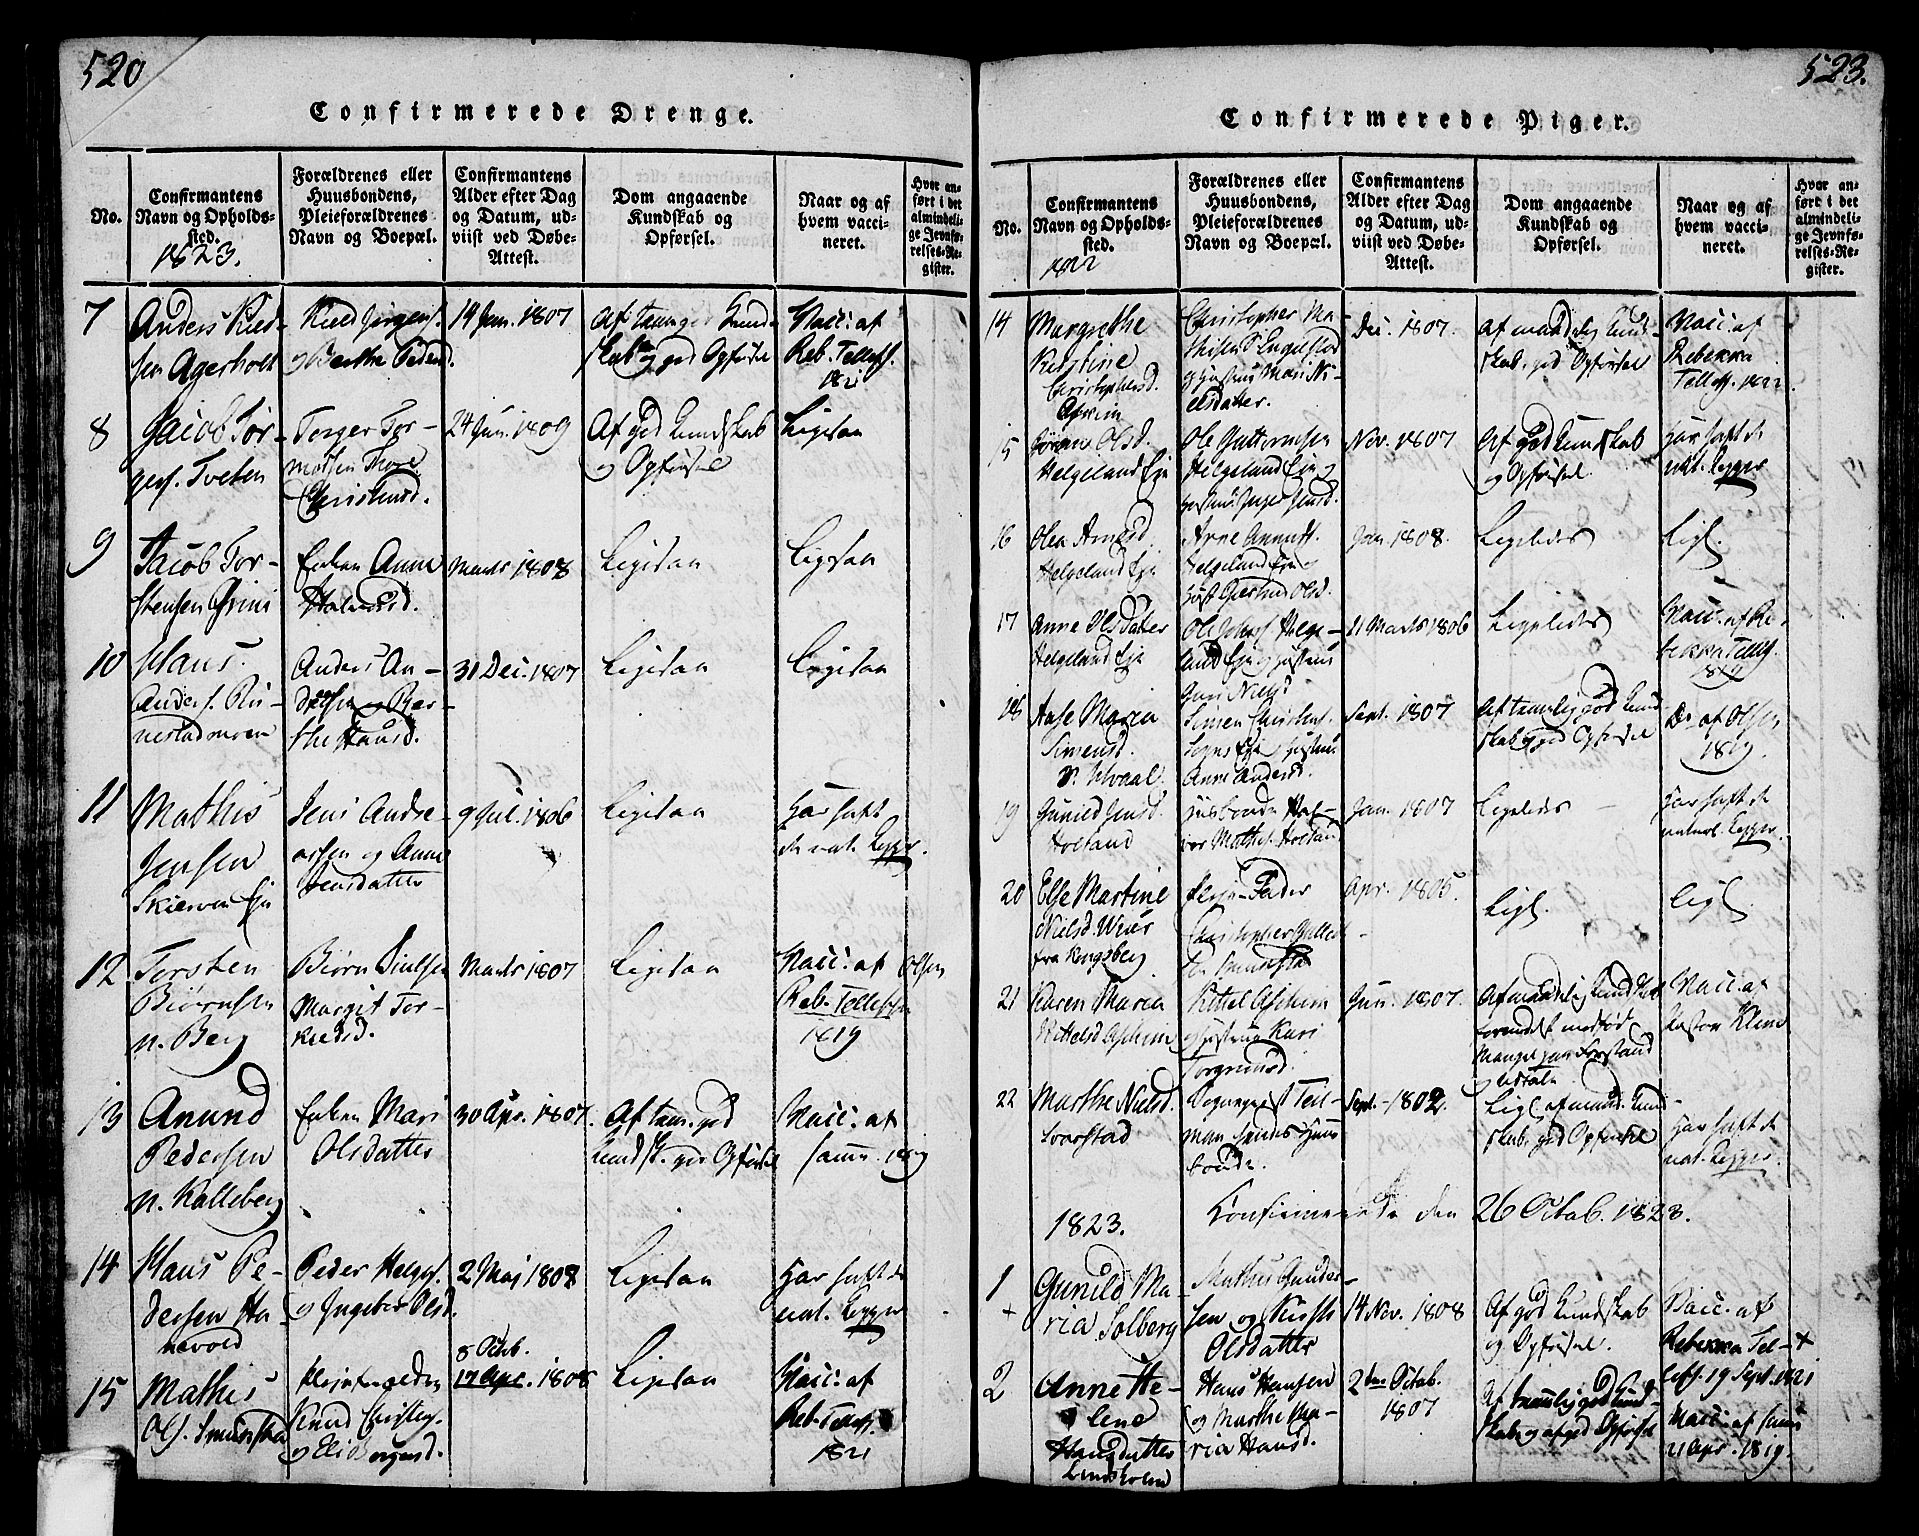 520
Confirmerede Drenge.
No.
Confirmantens Navn og Opholdssted.
1823.
Forældrenes eller Huusbondens, Pleieforældrenes Navn og Boepæl.
Confirmantens Alder efter Dag og Datum, udviist ved Døbe-Attest.
Dom angaaende Kundskab og Opførsel.
Naar og af hvem vaccineret.
Hvor anført i det almindelige Jevnførelses-Register.
7
Anders Kield-
sen Agerholt
Kield Jørgens.
og Berthe Pedersd.
19 Jan. 1807
Kundskab og god Opførsel
Vacc: af
Reb. Tellefs.
1821
8
Jacob Tor-
gers. Tveten
Torger Tor-
Christensd.
24 Jun. 1809
Af god Kundskab
og Opførsel
Ligesaa
9
Jacob Tor-
stensen Grini
Enken Anne
Halvorsd.
Marts 1808
Ligesaa
Ligesaa
10
Hans
Anders.
Anders An-
dersen og Ber-
the Hansd.
31 Dec. 1807
Ligesaa
Ligesaa
11
Mathis
Jensen
Skierven Eje
Jens Andre-
assen og Anne
Jensdatter
9 Jul. 1806
Ligesaa
Har haft
de nat. Kopper.
12
Torsten
Biørnsen
n. Berg
Biørn
Margit Tor-
kieldsd.
Marts 1807
Ligesaa
Vacc: af
Reb. Tellefsen
1819
Olsen
13
Anund
Pedersen
n. Kalleberg
Enken Mari
Olsdatter
30 Apr. 1807
Af tem. god
Kundsk. god Opførsel
Vacc: af
samme 1819
14
Hans Pe-
dersen Ha-
nevold
Peder Helges.
og Ingebor Olsd.
2 Maj 1808
Ligesaa
Har haft de
nat. Kopper
15
Mathis
Ols.
Knud Christens.
og Eli Borgersd.
8 Octb.
17 Apr. 1808
Ligesaa
Vacc: af
Reb. Tellefs.
1821
523.
Confirmerede Piger.
No.
Confirmantens Navn og Opholdssted.
1822
Forældrenes eller Huusbondens, Pleieforældrenes Navn og Boepæl.
Confirmantens Alder efter Dag og Datum, udviist ved Døbe-Attest.
Dom angaaende Kundskab og Opførsel.
Naar og af hvem vaccineret.
Hvor anført i det almindelige Jevnførelses-Register.
14
Margrethe
Kirstine
Christophersd.
Christopher Ma-
thisen Engnestad
og Hustrue Mari Ni-
elsdatter.
Dec. 1807.
Af maadelig Kund-
skab, god Opførsel
Vacc. af
Rebekka
Tellefs. 1822.
15
Jøran Olsd.
Helgeland Eje
Ole Guttormsen
Helgeland Eje og
Hustrue Inger Jensd.
Nov. 1807
Af god Kundskab
og Opførsel.
Har haft de
nat. Kopper
16
Olea Arnesd.
Helgeland Eje
Arne
Helgeland Eje og
Hust. Gjertrud Olsd.
Jan. 1808.
Ligeledes
Ligl.
17
Anne Olsdatter
Helgeland Eje
Ole Johns. Helge-
land Eje og Hustrue
Guri Nielsd.
21 Marts 1806
Ligeledes
Vacc. af Re-
bekka Tellefs.
1819
18
Aase Maria
Simensd.
n. Hvaal
Simen Christens.
Sogns Eje og Hustrue
Anne Andersd.
Sept. 1807
Af temlig god Kund-
skab og god Opførsel
Do af Olsen
1819
19
Gunild Jensd.
Holtand
Husbonde Hal-
vor Mathis. Holtan
Jan. 1807
Ligeledes
Har haft de
naturl. Kopper.
20
Else Martine
Nielsd. Weier
fra Kongsberg
Pleje-Fader
Christopher
Apr. 1805.
Ligl.
Ligl.
21
Karen Maria
Kittelsd. Askeim
Kittel Askeim
og Hustrue Kari
Torgrimsd.
Jun. 1807.
Af maadelig Kundskab
formedelst medfød
Mangel paa Forstand
og Udtale
Vacc. af
Pastor Klem
22
Marthe Nielsd.
Svarstad
Sogneprest Teil-
man hendes Huus-
bonde.
Sept. 1802.
Ligl. af maad. Kund-
skab, god Opførsel
Har haft de
nat. Kopper.
1823.
Confirmerede den 26 Octob. 1823.
1
+
Gunild Ma-
ria Solberg
Mathis Gunder-
sen og Kirsti
Olsdatter
14 Nov. 1808
Af god Kundskab
og Opførsel.
Vacc. af
Rebekka Tel- +
lefs. 19 Sept. 1821
2
Anne He-
lene
Hansdatter
Lindsholm
Hans Hansen
og Marthe Ma-
ria Hansd.
2den Octob.
1807
Af temmelig god Kund-
skab og af god Opførsel
Vacc: af samme
21 Apr. 1819.